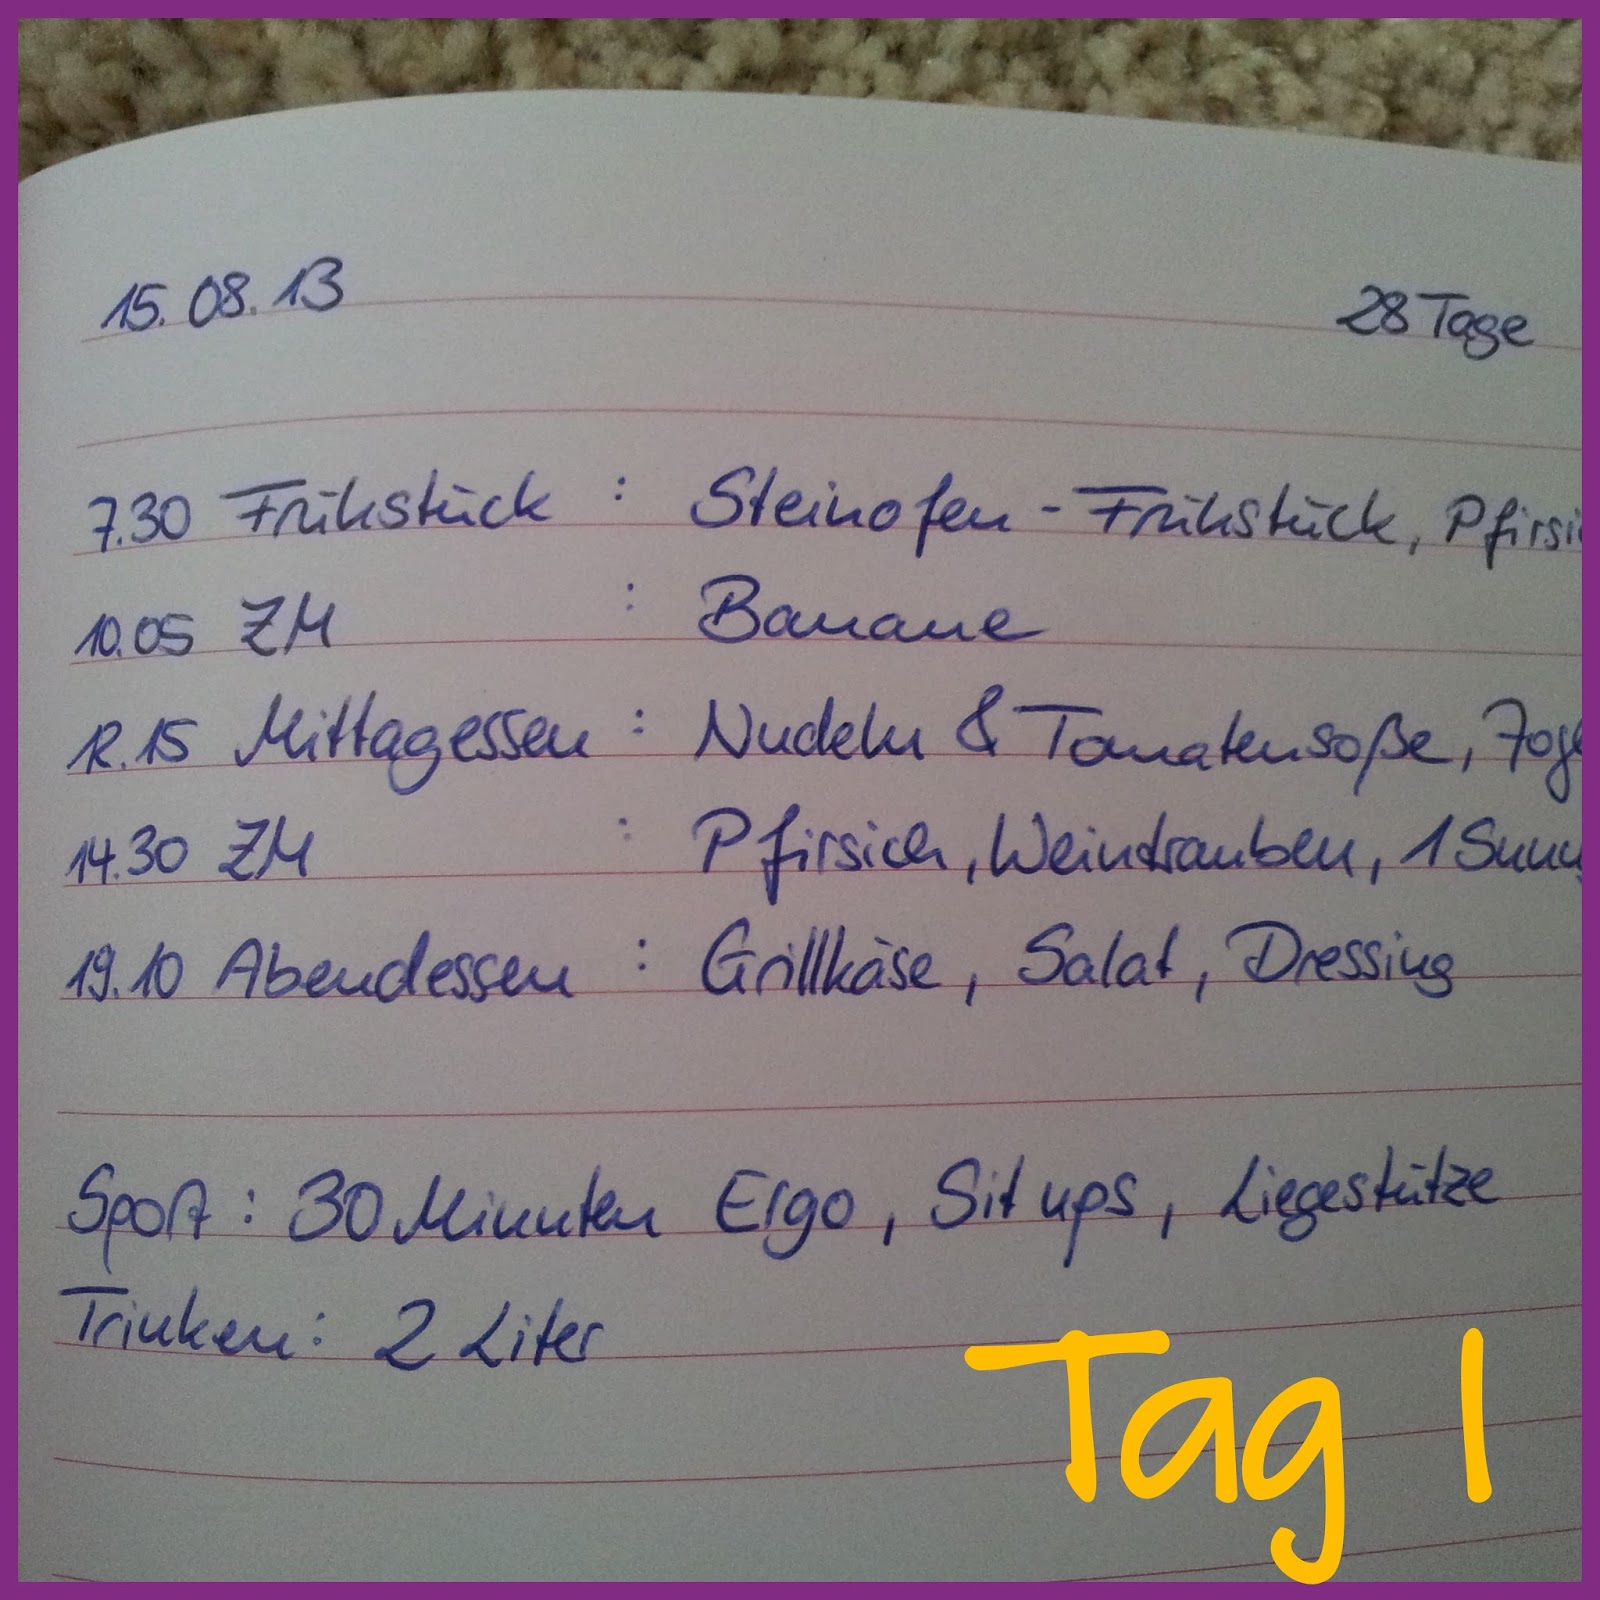 15.08.13 28 Tage
7.30 Frühstück : Steinofen-Frühstück, Pfirsi
10.05 ZM : Banane
12.15 Mittagessen : Nudeln & Tomatensoße, Jog
14.30 ZM : Pfirsich, Weintrauben, 1 Sunn
19.10 Abendessen : Grillkäse, Salat, Dressing
Sport : 30 Minuten Ergo, Sit ups, Liegestütze
Trinken : 2 Liter
Tag 1